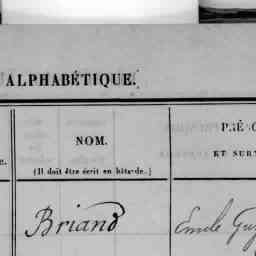 ALPHABÉTIQUE.
NOM.
(Il doit être écrit en bâtarde.)
ET
Briand
Emile